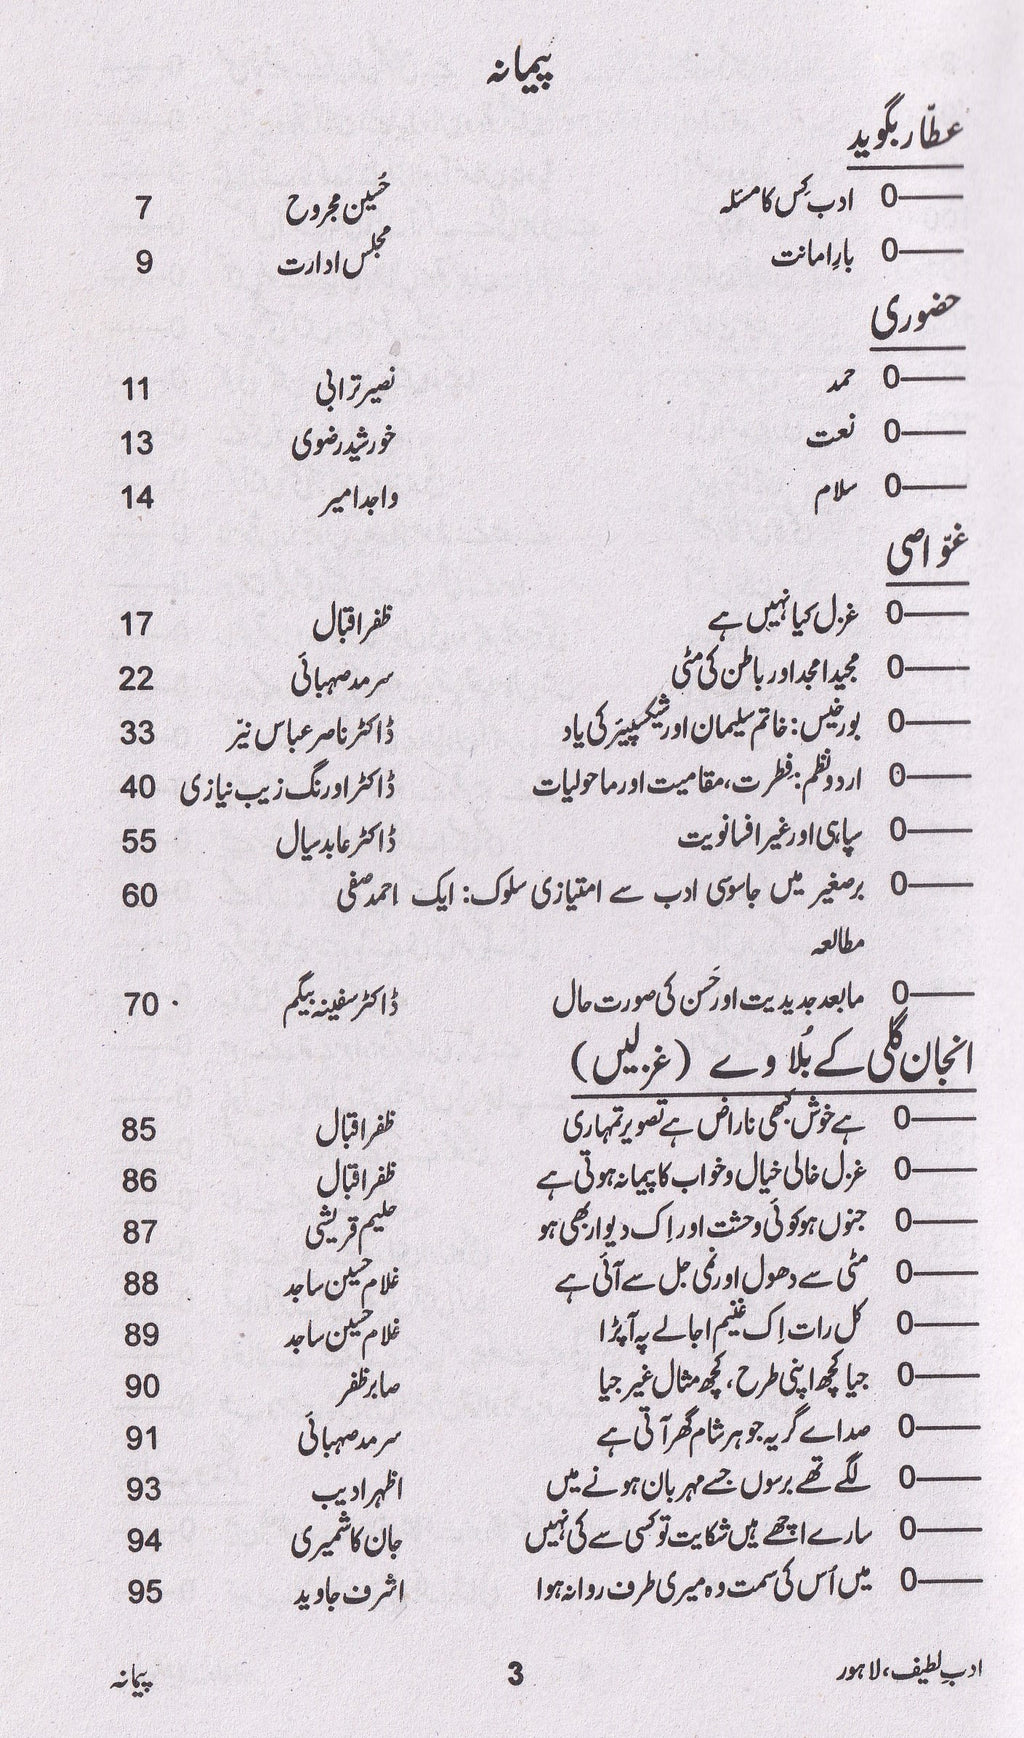 پیمانہ
عطّار بگوید
0 ادب کِس کا مسئلہ حُسین مجروح 7
0 بارِ امانت مجلس ادارت 9
حضوری
0 حمد نصیر ترابی 11
0 نعت خورشید رضوی 13
0 سلام واجد امیر 14
غوّاصی
0 غزل کیا نہیں ہے ظفر اقبال 17
0 مجید امجد اور باطن کی مٹی سرمد صہبائی 22
0 بورخیس: خاتم سلیمان اور شیکسپیئر کی یاد ڈاکٹر ناصر عباس نیّر 33
0 اردو نظم: فِطرت، مقامیت اور ماحولیات ڈاکٹر اورنگ زیب نیازی 40
0 سپاہی اور غیر افسانویت ڈاکٹر عابد سیال 55
0 برصغیر میں جاسوسی ادب سے امتیازی سلوک: ایک احمد صفی 60
مطالعہ
0 مابعد جدیدیت اور حَسن کی صورت حال ڈاکٹر سفینہ بیگم 70
انجان گلی کے بُلاوے (غزلیں)
0 ہے خوش کبھی ناراض ہے تصویر تمہاری ظفر اقبال 85
0 غزل خالی خیال و خواب کا پیمانہ ہوتی ہے ظفر اقبال 86
0 جنوں ہو کوئی وحشت اور اِک دیوار بھی ہو حلیم قریشی 87
0 مٹی سے دھول اور نمی جل سے آئی ہے غلام حسین ساجد 88
0 کل رات اِک غنیم اجالے پہ آپڑا غلام حسین ساجد 89
0 جیا کچھ اپنی طرح، کچھ مثال غیر جیا صابر ظفر 90
0 صداے گریہ جو ہر شام گھر آتی ہے سرمد صہبائی 91
0 لگے تھے برسوں جسے مہربان ہونے میں اظہر ادیب 93
0 سارے اچھے ہیں شکایت تو کسی سے کی نہیں جان کاشمیری 94
0 میں اُس کی سمت وہ میری طرف روانہ ہوا اشرف جاوید 95
ادبِ لطیف، لاہور 3 پیمانہ